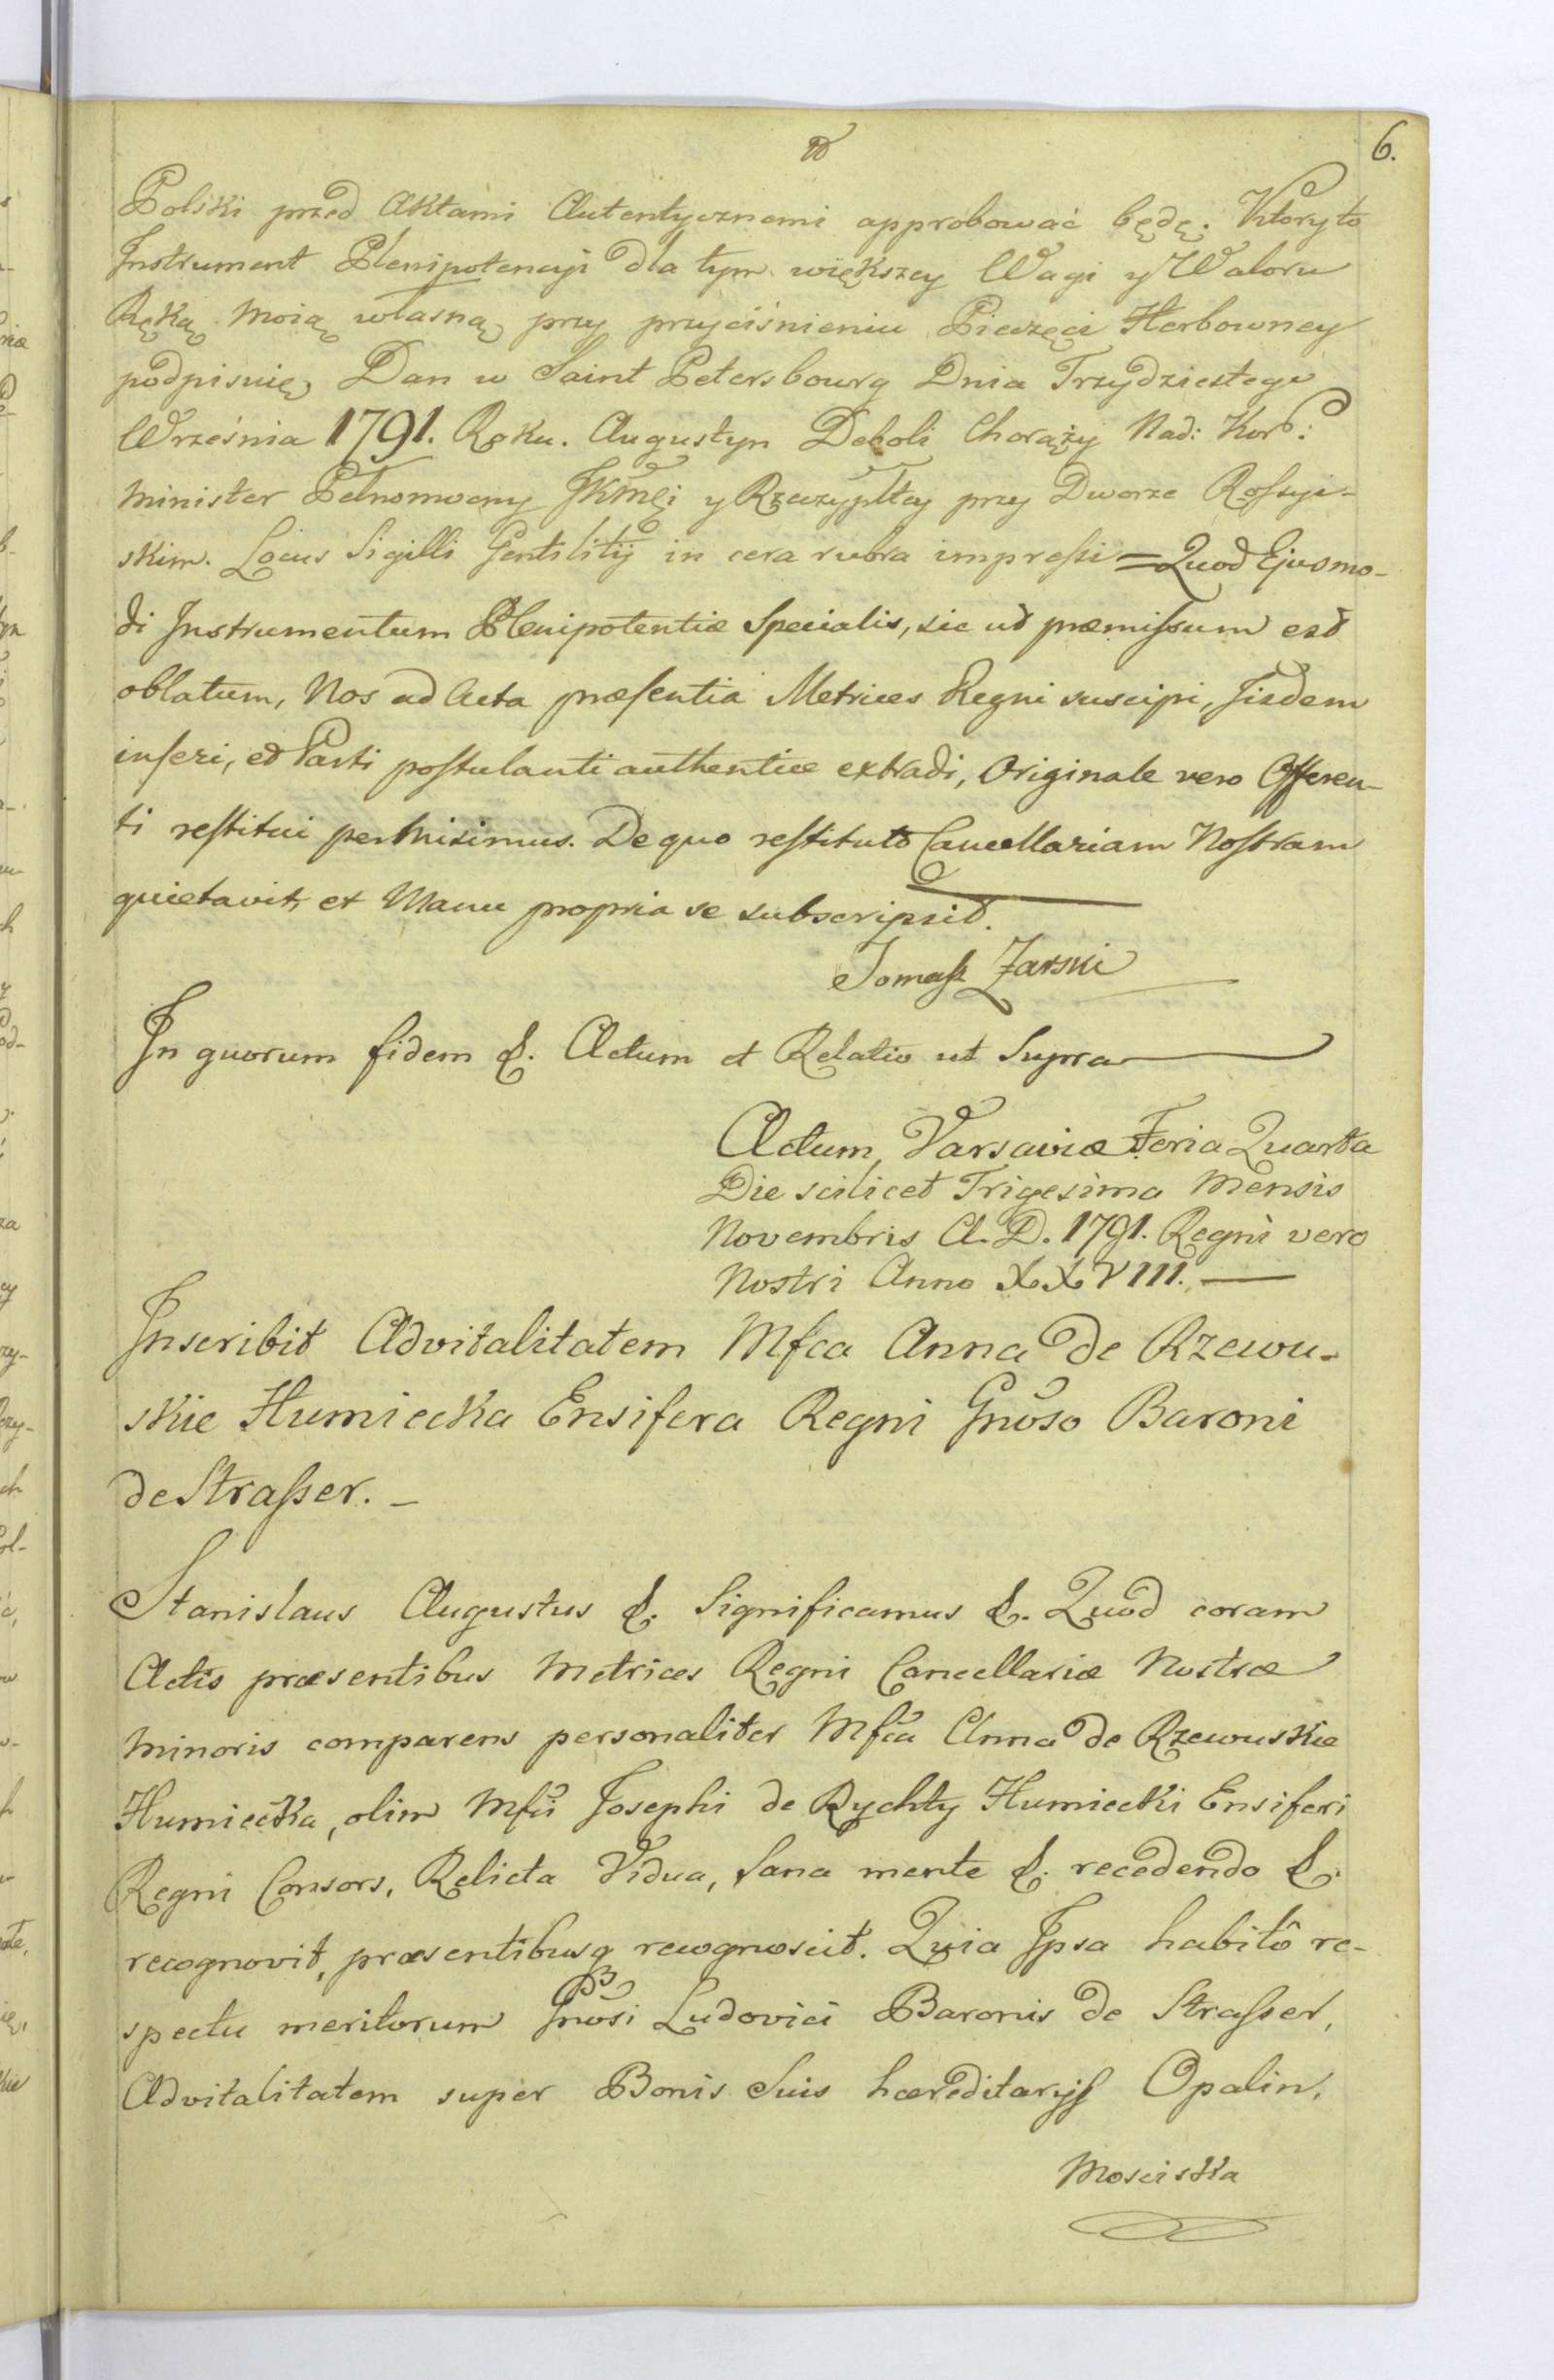 6.
Polski przed Aktami Autentycznemi approbować będę. Ktory to
Instrument Plenipotencyi dla tym większey Wagi y Waloru
Ręką moią własną przy przyciśnieniu Pieczęci Herbowney
podpisuię, Dan w Saint Petersbourg Dnia Trzydziestego
Września 1791. Roku. Augustyn Deboli Chorąży Nad: Kor:
Minister Pełnomocny JKMci y Rzeczypltey przy Dworze Roſsyi-
skim. Locus Sigilli Gentilitij in cera rubra impreſsi = Quod Ejusmo-
di Instrumentum Plenipotentiæ Specialis, sic ut præmiſsum est
oblatum, Nos ad Acta præſentia Metrices Regni suscipi, Iisdem
inſeri, et Parti poſtulanti authentice extradi, Originale vero Offeren-
ti reſtitui permisimus. De quo reſtituto Cancellariam Noſtram
quietavit, et Manu propria se subscripsit.
Tomaſz Żarski
In quorum fidem &. Actum et Relatio ut Supra
Actum Varsaviæ Feria Quarta
Die scilicet Trigesima Mensis
Novembris A. D. 1791. Regni vero
Nostri Anno XXVIII. —
Inscribit Advitalitatem Mfca Anna de Rzewu-
skie Humiecka Ensifera Regni Gnoso Baroni
de Straſser. –
Stanislaus Augustus &. Significamus &. Quod coram
Actis præsentibus Metrices Regni Cancellariæ Nostræ
Minoris comparens personaliter Mfca Anna de Rzewuskie
Humiecka, olim Mfci Josephi de Rychty Humiecki Ensiferi
Regni Consors, Relicta Vidua, Sana mente &. recedendo &.
recognovit, præsentibusq recognoscit. Quia Ipsa habitô re-
spectu meritorum Gnosi Ludovici Baronis de Straſser,
Advitalitatem super Bonis Suis hæreditarijs Opalin,
Mosciska